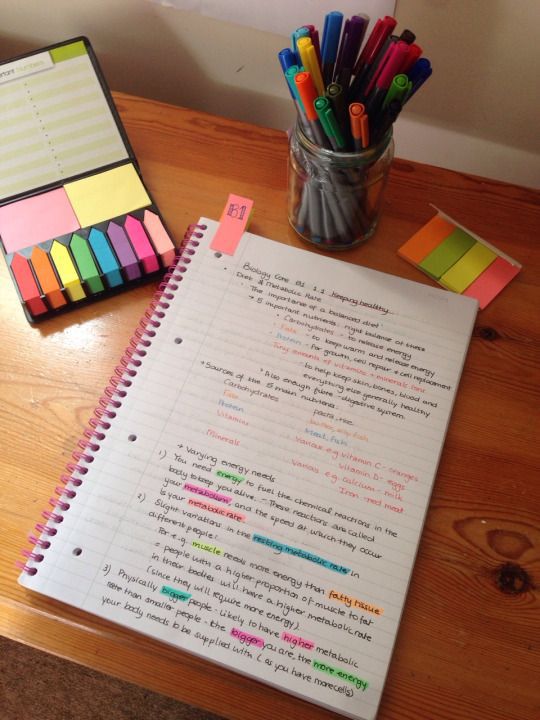 Important Numbers
B1
Biology Core B1 1.1 Keeping healthy
• Diet & Metabolic Rate
• The importance of a balanced diet
→ 5 important nutrients: right balance of these
• Carbohydrates - to release energy
• Fats - to keep warm and release energy
• Protein - for growth, cell repair & cell replacement
Tiny amounts of vitamins + mineral ions
- to help keep skin, bones, blood and
everything else generally healthy
• Also enough fibre - digestive system
→ Sources of the 5 main nutrients:
Carbohydrates pasta, rice
Fats butter, oily fish
Protein Meat, fish
Vitamins Various e.g vitamin C - oranges
vitamin D - eggs
Minerals Various e.g. calcium - milk
Iron - red meat
→ Varying energy needs
1) You need energy to fuel the chemical reactions in the
body to keep you alive. - These reactions are called
your metabolism, and the speed at which they occur
is your metabolic rate.
2) Slight variations in the resting metabolic rate in
different people:
For e.g. muscle needs more energy than fatty tissue
- people with a higher proportion of muscle to fat
in their bodies will have a higher metabolic rate
(since they will require more energy).
3) Physically bigger people - likely to have higher metabolic
rate than smaller people - the bigger you are, the more energy
your body needs to be supplied with (as you have more cells)